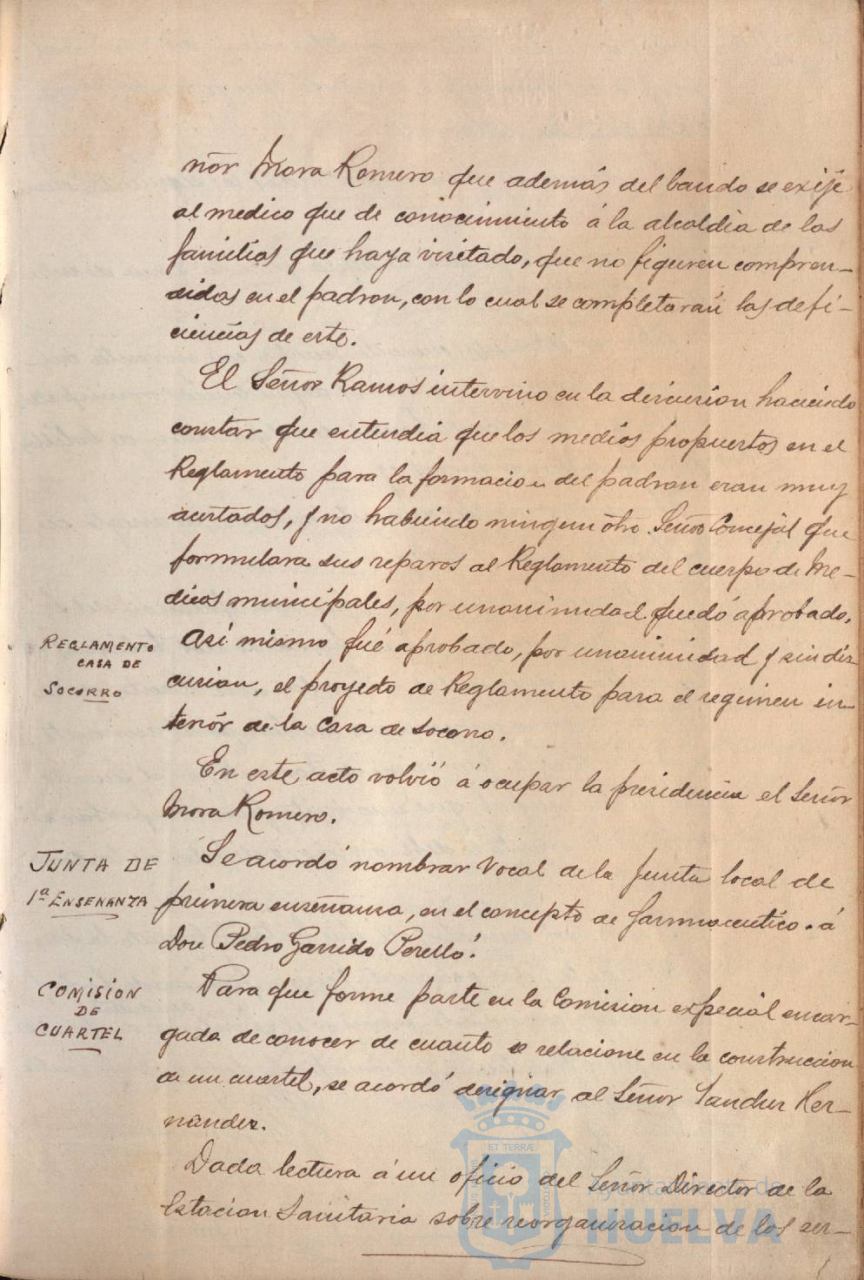 ñor Mora Romero que además del bando se exije
al medico que de conocimiento á la alcaldia de las
familias que haya visitado, que no figuren compren-
didas en el padron, con lo cual se completarán las defi-
ciencias de este.
El Señor Ramos intervino en la discusion haciendo
constar que entendia que los medios propuestos en el
Reglamento para la formacion del padron eran muy
acertados, y no habiendo ningun otro Señor Concejal que
formulara sus reparos al Reglamento del cuerpo de Me-
dicos municipales, por unanimidad quedó aprobado.
REGLAMENTO
CASA DE
SOCORRO
Asi mismo fué aprobado, por unanimidad y sin dis
cusion, el proyecto de Reglamento para el regimen in
terior de la Casa de Socorro.
En este acto volvió á ocupar la presidencia el Señor
Mora Romero.
JUNTA DE
1ª ENSEÑANZA
Se acordó nombrar Vocal de la Junta local de
primera enseñansa, en el concepto de farmaceutico. á
Don Pedro Garrido Perelló.
COMISION
DE
CUARTEL
Para que forme parte en la Comision especial encar-
gada de conocer de cuanto se relacione en la construccion
de un cuartel, se acordó designar al Señor Sanchez Her-
nandez.
Dada lectura á un oficio del Señor Director de la
Estacion Sanitaria sobre reorganizacion de los ser-
ET TERRÆ
Ayuntamiento de
HUELVA